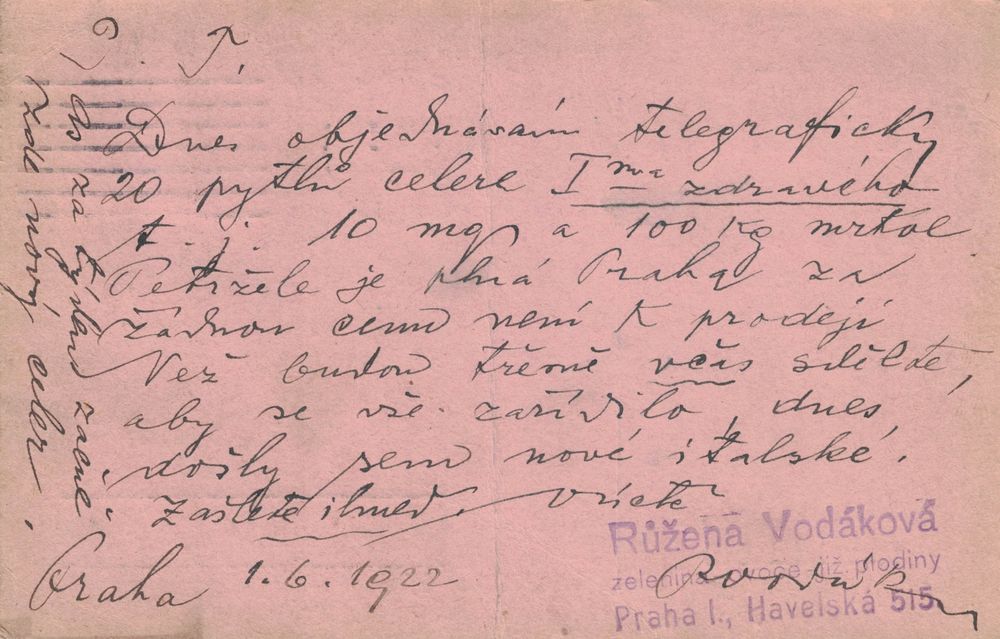 P. T.
Dnes objednávám telegraficky
20 pytlů celere I ma zdravého
t. j. 10 mq a 100 kg mrkve
Petržele je plná Praha za
žádnou cenu není k prodeji
Než budou třešně včas sdělte,
aby se vše zařídilo, dnes
došly sem nové italské.
Zašlete ihned. Vúctě
Praha 1. 6. 1922
Růžena Vodáková
zelenina, ovoce, již. plodiny
Praha I., Havelská 515.
As za týden začne
zde nový celer.